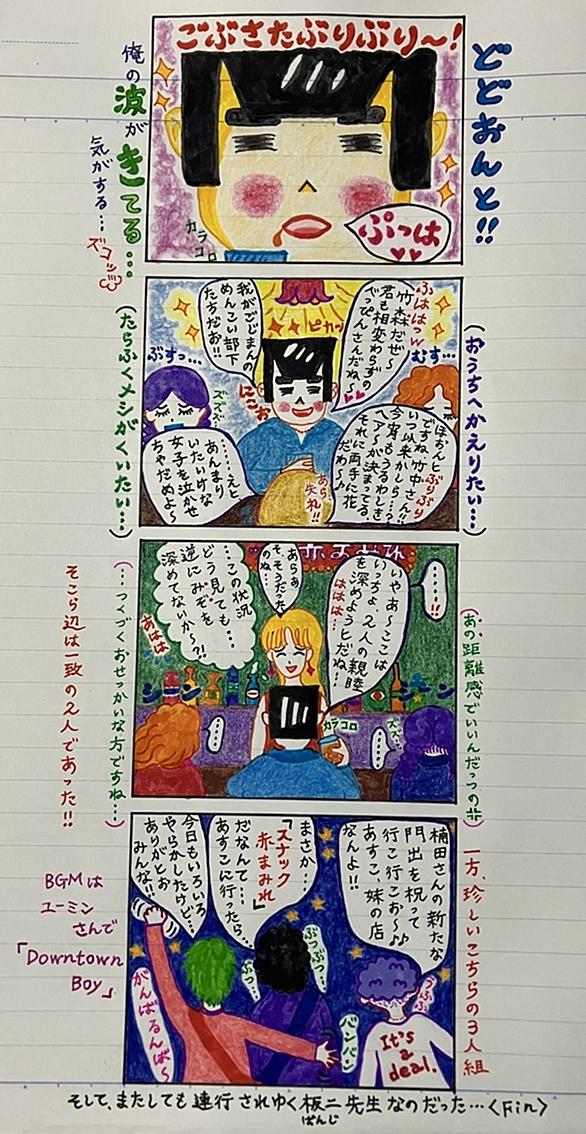 どどおんと!!
ごぶさたぶりぶり〜!
ぷっは
カラコロ
俺の波が
きてる…
気がする…
ズコッ
(おうちへかえりたい…)
ぶははっw
竹森だぜ〜
君も相変わらずの
べっぴんさんだね〜
むす…
ピカッ
我がごじまんの
めんこい部下
たちだお!!
ぶすっ…
にこお
ズズズ…
ほおんとぶりぶり
ですね、竹中さん!!
いつ以来かしら…?
今宵もうるわしき
ヘアーが決まってる
それに両手に花
だわ〜
あら、
失礼!!
……えと
あんまり
いたいけな
女子を泣かせ
ちゃだめよ〜
(たらふくメシがくいたい…)
(あの距離感でいいんだっつの#)
……!!
いやあ〜ここは
いっちょ、2人の親睦
を深めようとだね…
ははは…
赤まみれ
あらあ
そ、そうだった
のね…
…この状況
どう見ても…
逆にみぞを
深めてないか〜?!
あはは
シーン
シーン
カラコロ
ズズ…
……
……
(…つくづくおせっかいな方ですね…)
そこら辺は一致の2人であった!!
一方、珍しいこちらの3人組
楠田さんの新たな
門出を祝って
行こ行こお〜♪
あすこ、妹の店
なんよ!!
うふふ
It's
a
deal.
まさか…
「スナック
赤まみれ」
だなんて…
あすこに行ったら…
ぶつぶつ…
ぶつぶつ…
バンバン
今日もいろいろ
やらかしたけど…
ありがとお
みんな!!
がんばるんば〜
BGMは
ユーミン
さんで
「Downtown
Boy」
そして、またしても連行されゆく板二先生なのだった…〈Fin〉
ばんじ